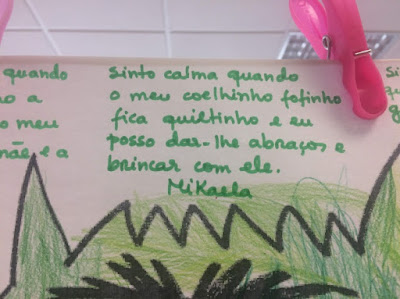 quando
o a
o meu
mãe e a
sinto calma quando
o meu coelhinho fofinho
fica quiltinho e eu
posso dar-lhe abraços e
brincar com ele.
Mikaela